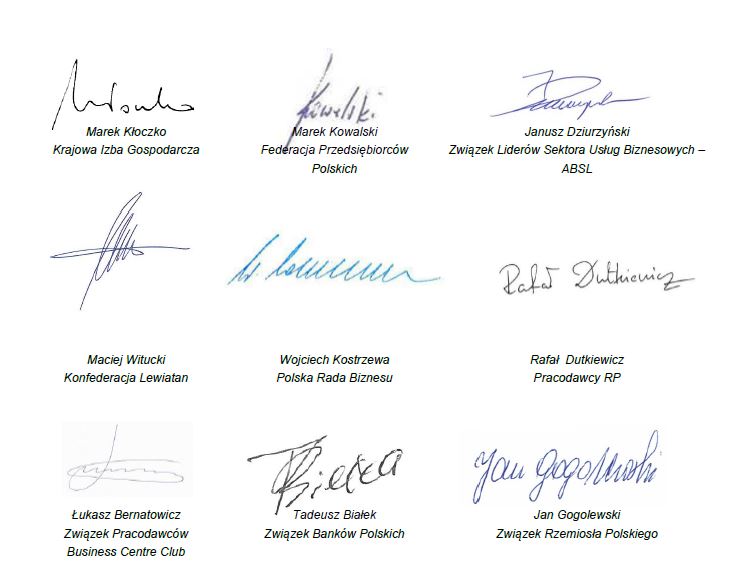 Marek Kłoczko
Krajowa Izba Gospodarcza
Kowalski
Marek Kowalski
Federacja Przedsiębiorców
Polskich
Janusz Dziurzyński
Związek Liderów Sektora Usług Biznesowych –
ABSL
Maciej Witucki
Konfederacja Lewiatan
Wojciech Kostrzewa
Polska Rada Biznesu
Rafał Dutkiewicz
Rafał Dutkiewicz
Pracodawcy RP
Łukasz Bernatowicz
Związek Pracodawców
Business Centre Club
Tadeusz Białek
Związek Banków Polskich
Jan Gogolewski
Jan Gogolewski
Związek Rzemiosła Polskiego